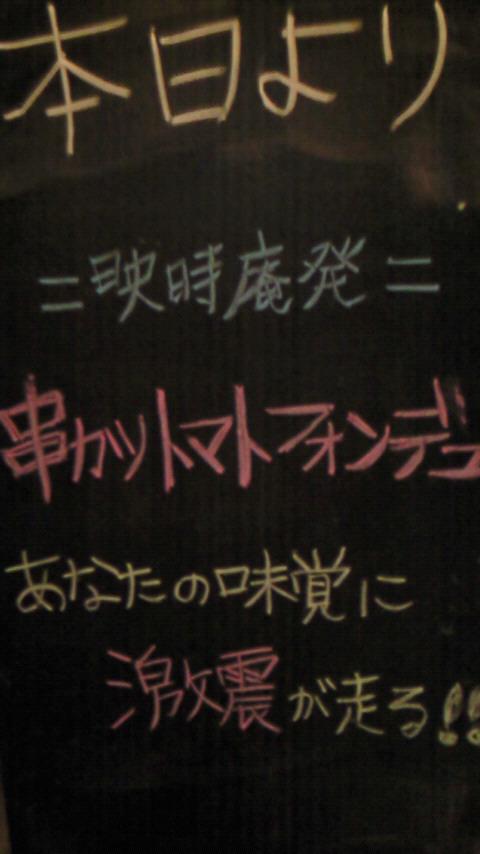 本日より
=映時庵発=
串カツトマトフォンデュ
あなたの味覚に
激震が走る!!